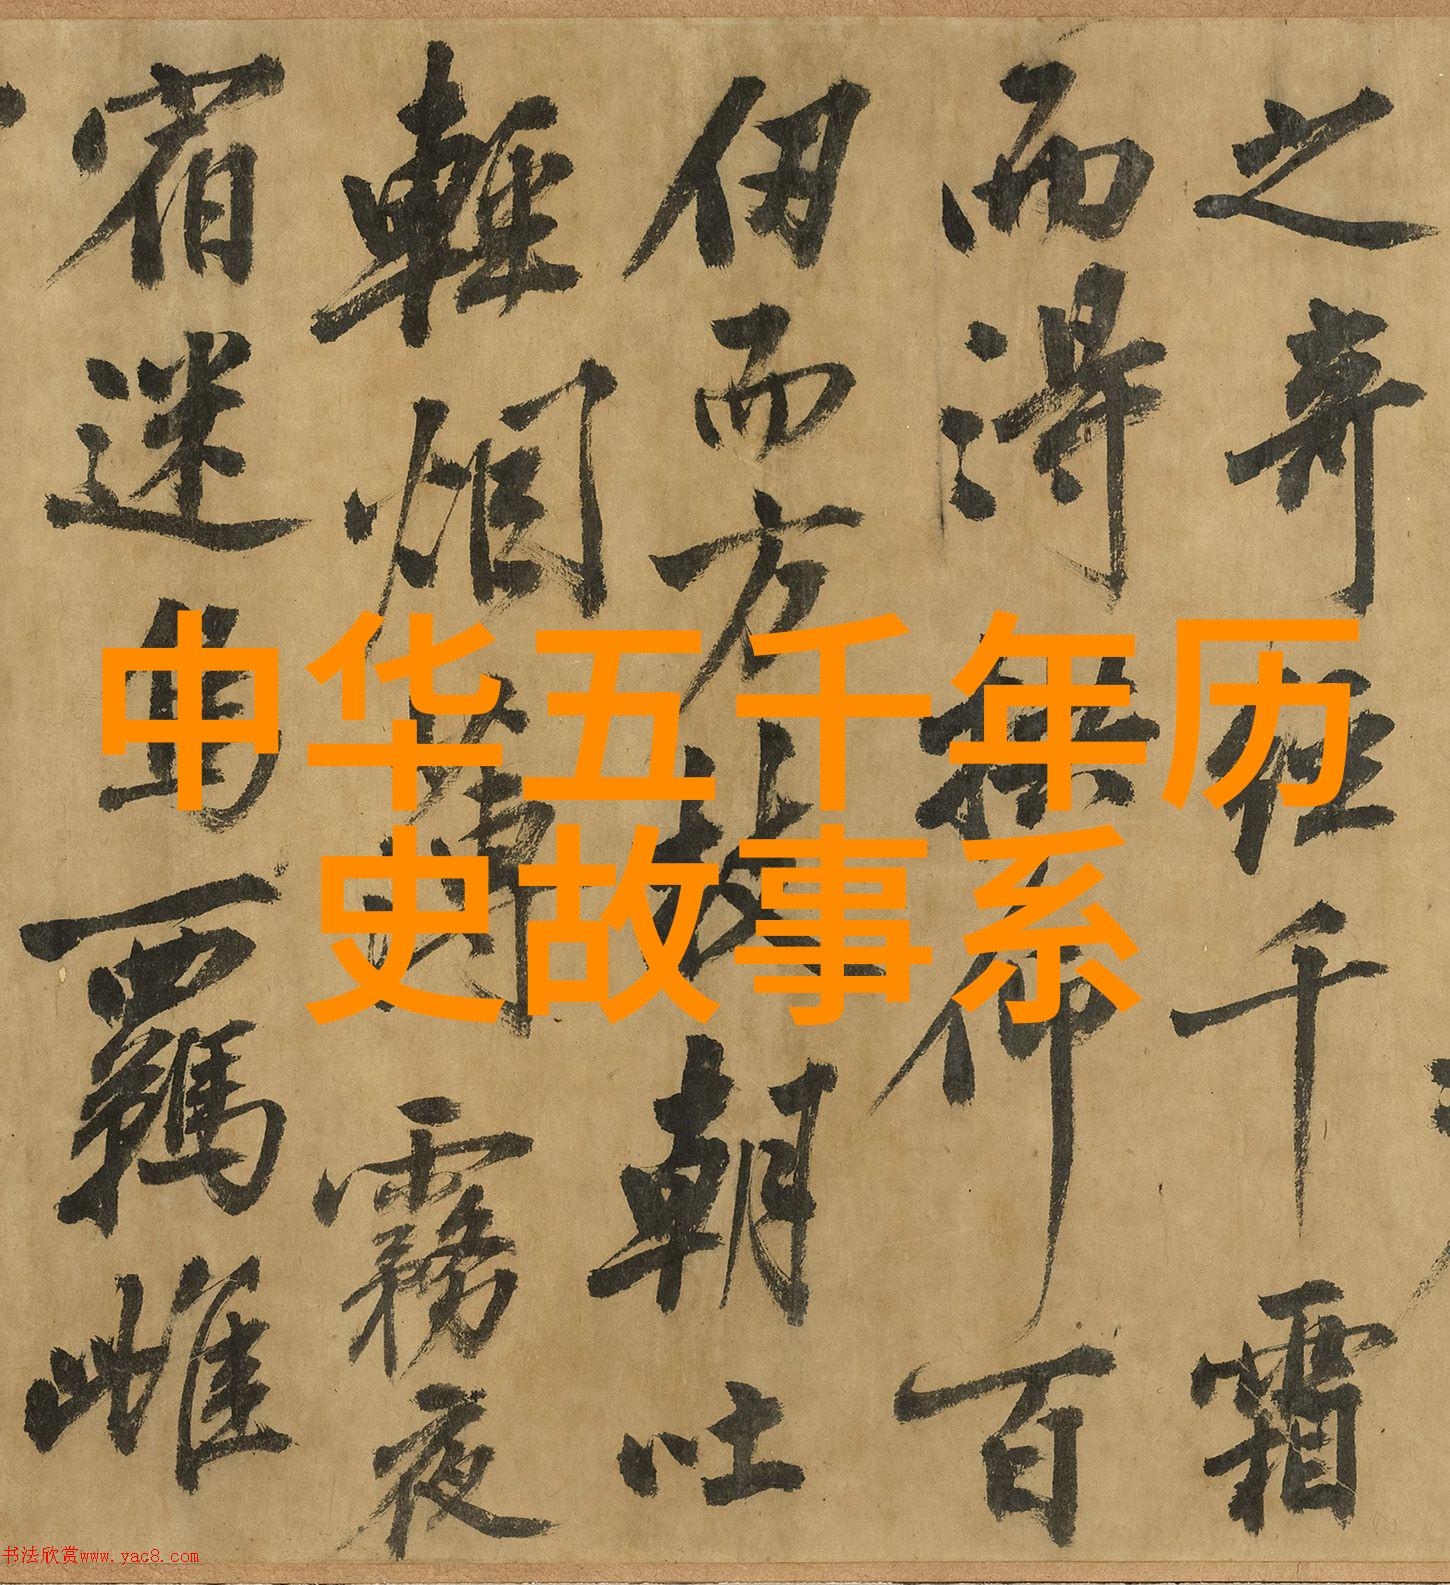 之奇經千霜
而得拱仰百
仞而方枝朝吐
輕烟薄霧夜
宿迷鳥羈雌
中华五千年历
史故事系
书法欣赏www.yac8.com